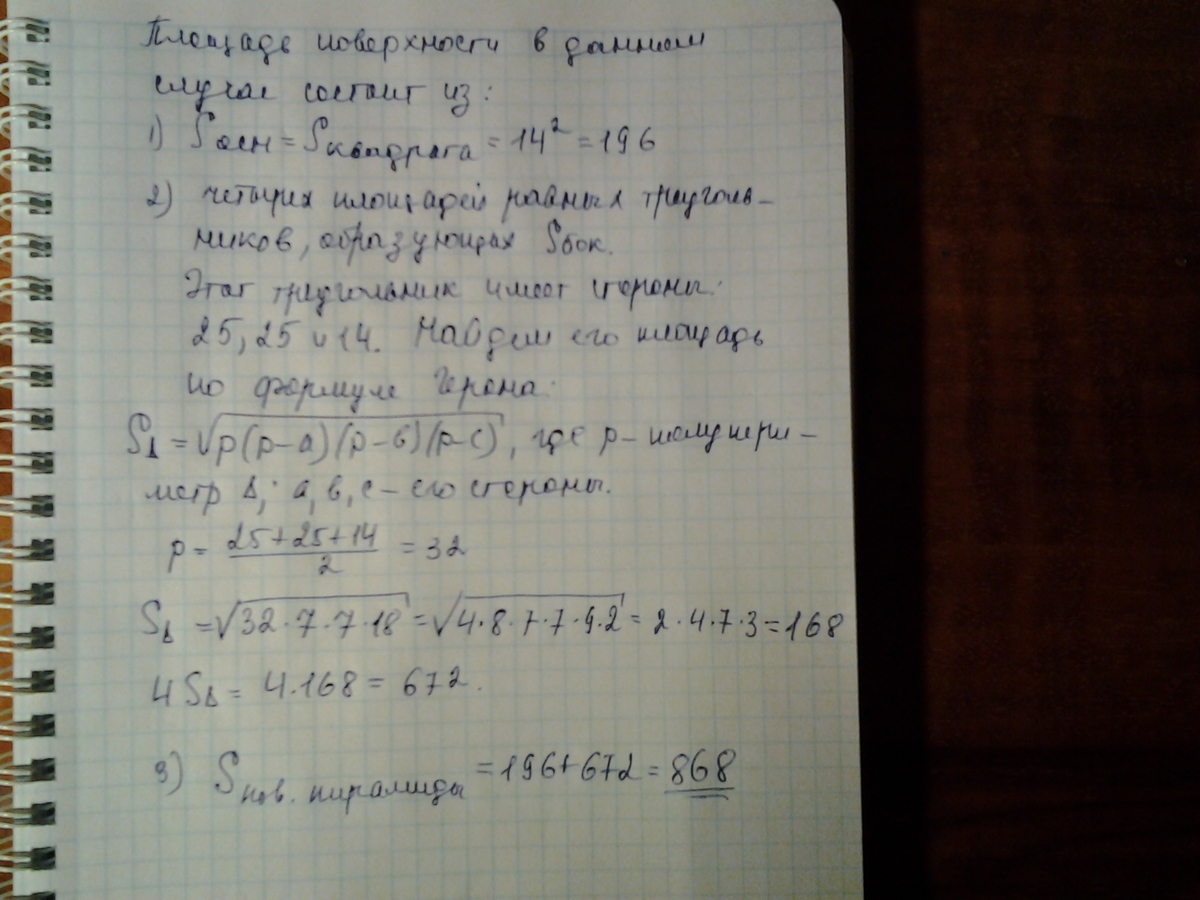 Площадь поверхности в данном
случае состоит из:
1) Sосн = Sквадрата = 14² = 196
2) четырех площадей равных треуголь-
ников, образующих Sбок.
Этот треугольник имеет стороны:
25, 25 и 14. Найдем его площадь
по формуле Герона:
SΔ = √p(p-a)(p-в)(p-c), где p - полупери-
метр Δ; a, в, с - его стороны.
p = (25+25+14)/2 = 32
SΔ = √32·7·7·18 = √4·8·7·7·9·2 = 2·4·7·3 = 168
4SΔ = 4·168 = 672.
3) Sпов. пирамиды = 196+672 = 868